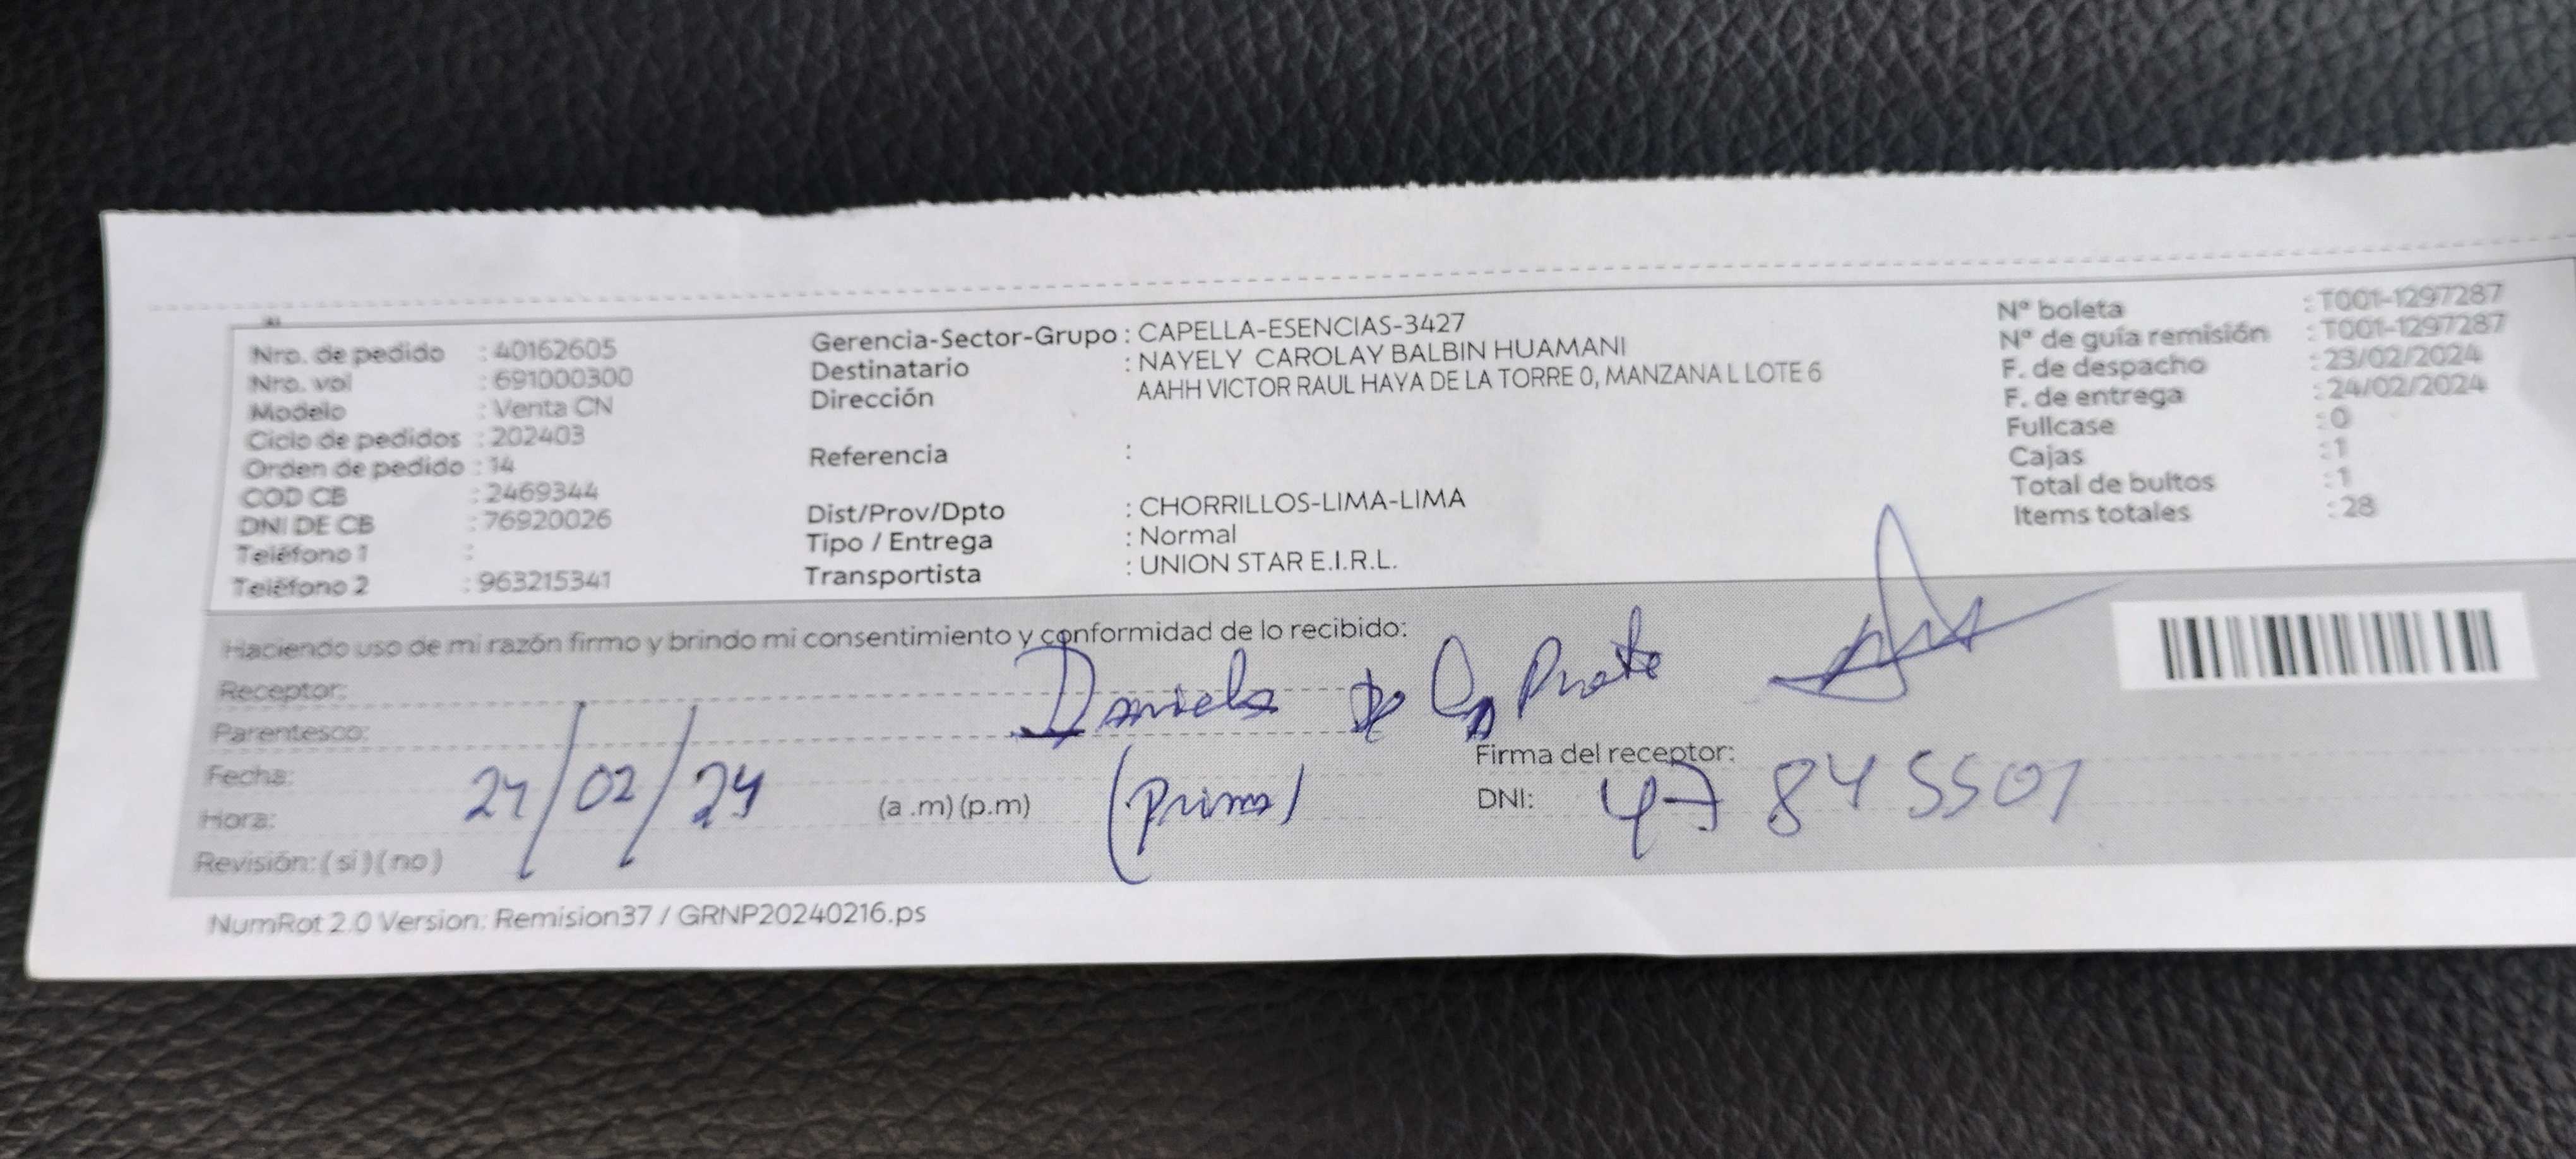 Nro. de pedido : 40162605
Nro. vol : 691000300
Modelo : Venta CN
Ciclo de pedidos : 202403
Orden de pedido : 14
COD CB : 2469344
DNI DE CB : 76920026
Teléfono 1 :
Teléfono 2 : 963215341
Gerencia-Sector-Grupo : CAPELLA-ESENCIAS-3427
Destinatario : NAYELY CAROLAY BALBIN HUAMANI
Dirección AAHH VICTOR RAUL HAYA DE LA TORRE 0, MANZANA L LOTE 6
Referencia :
Dist/Prov/Dpto : CHORRILLOS-LIMA-LIMA
Tipo / Entrega : Normal
Transportista : UNION STAR E.I.R.L.
Nº boleta : T001-1297287
Nº de guía remisión : T001-1297287
F. de despacho : 23/02/2024
F. de entrega : 24/02/2024
Fullcase : 0
Cajas : 1
Total de bultos : 1
Items totales : 28
Haciendo uso de mi razón firmo y brindo mi consentimiento y conformidad de lo recibido:
Receptor: Daniela de
Parentesco:
Fecha: 24/02/24
Hora: (a .m) (p.m) (prima)
Revisión: ( si ) ( no )
Firma del receptor:
DNI: 47845501
NumRot 2.0 Version: Remision37 / GRNP20240216.ps